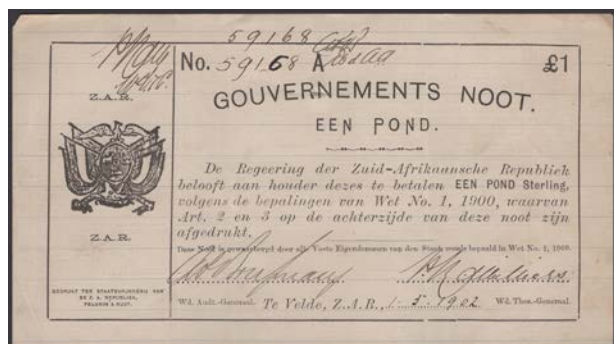 59168
No. 59168 A £1
Z.A.R.
GOUVERNEMENTS NOOT.
EEN POND.
De Regeering der Zuid-Afrikaansche Republiek
belooft aan houder dezes te betalen EEN POND Sterling,
volgens de bepalingen van Wet No. 1, 1900, waarvan
Art. 2 en 3 op de achterzijde van deze noot zijn
afgedrukt.
Z.A.R.
Deze Noot is gewaarborgd door alle Vaste Eigendommen van den Staat zooals bepaald in Wet No. 1, 1900.
GEDRUKT TER STAATSDRUKKERIJ VAN
DE Z. A. REPUBLIEK,
Wd. Audt.-Generaal. Te Velde, Z.A.R., 1.5.1902 Wd. Thes.-Generaal.